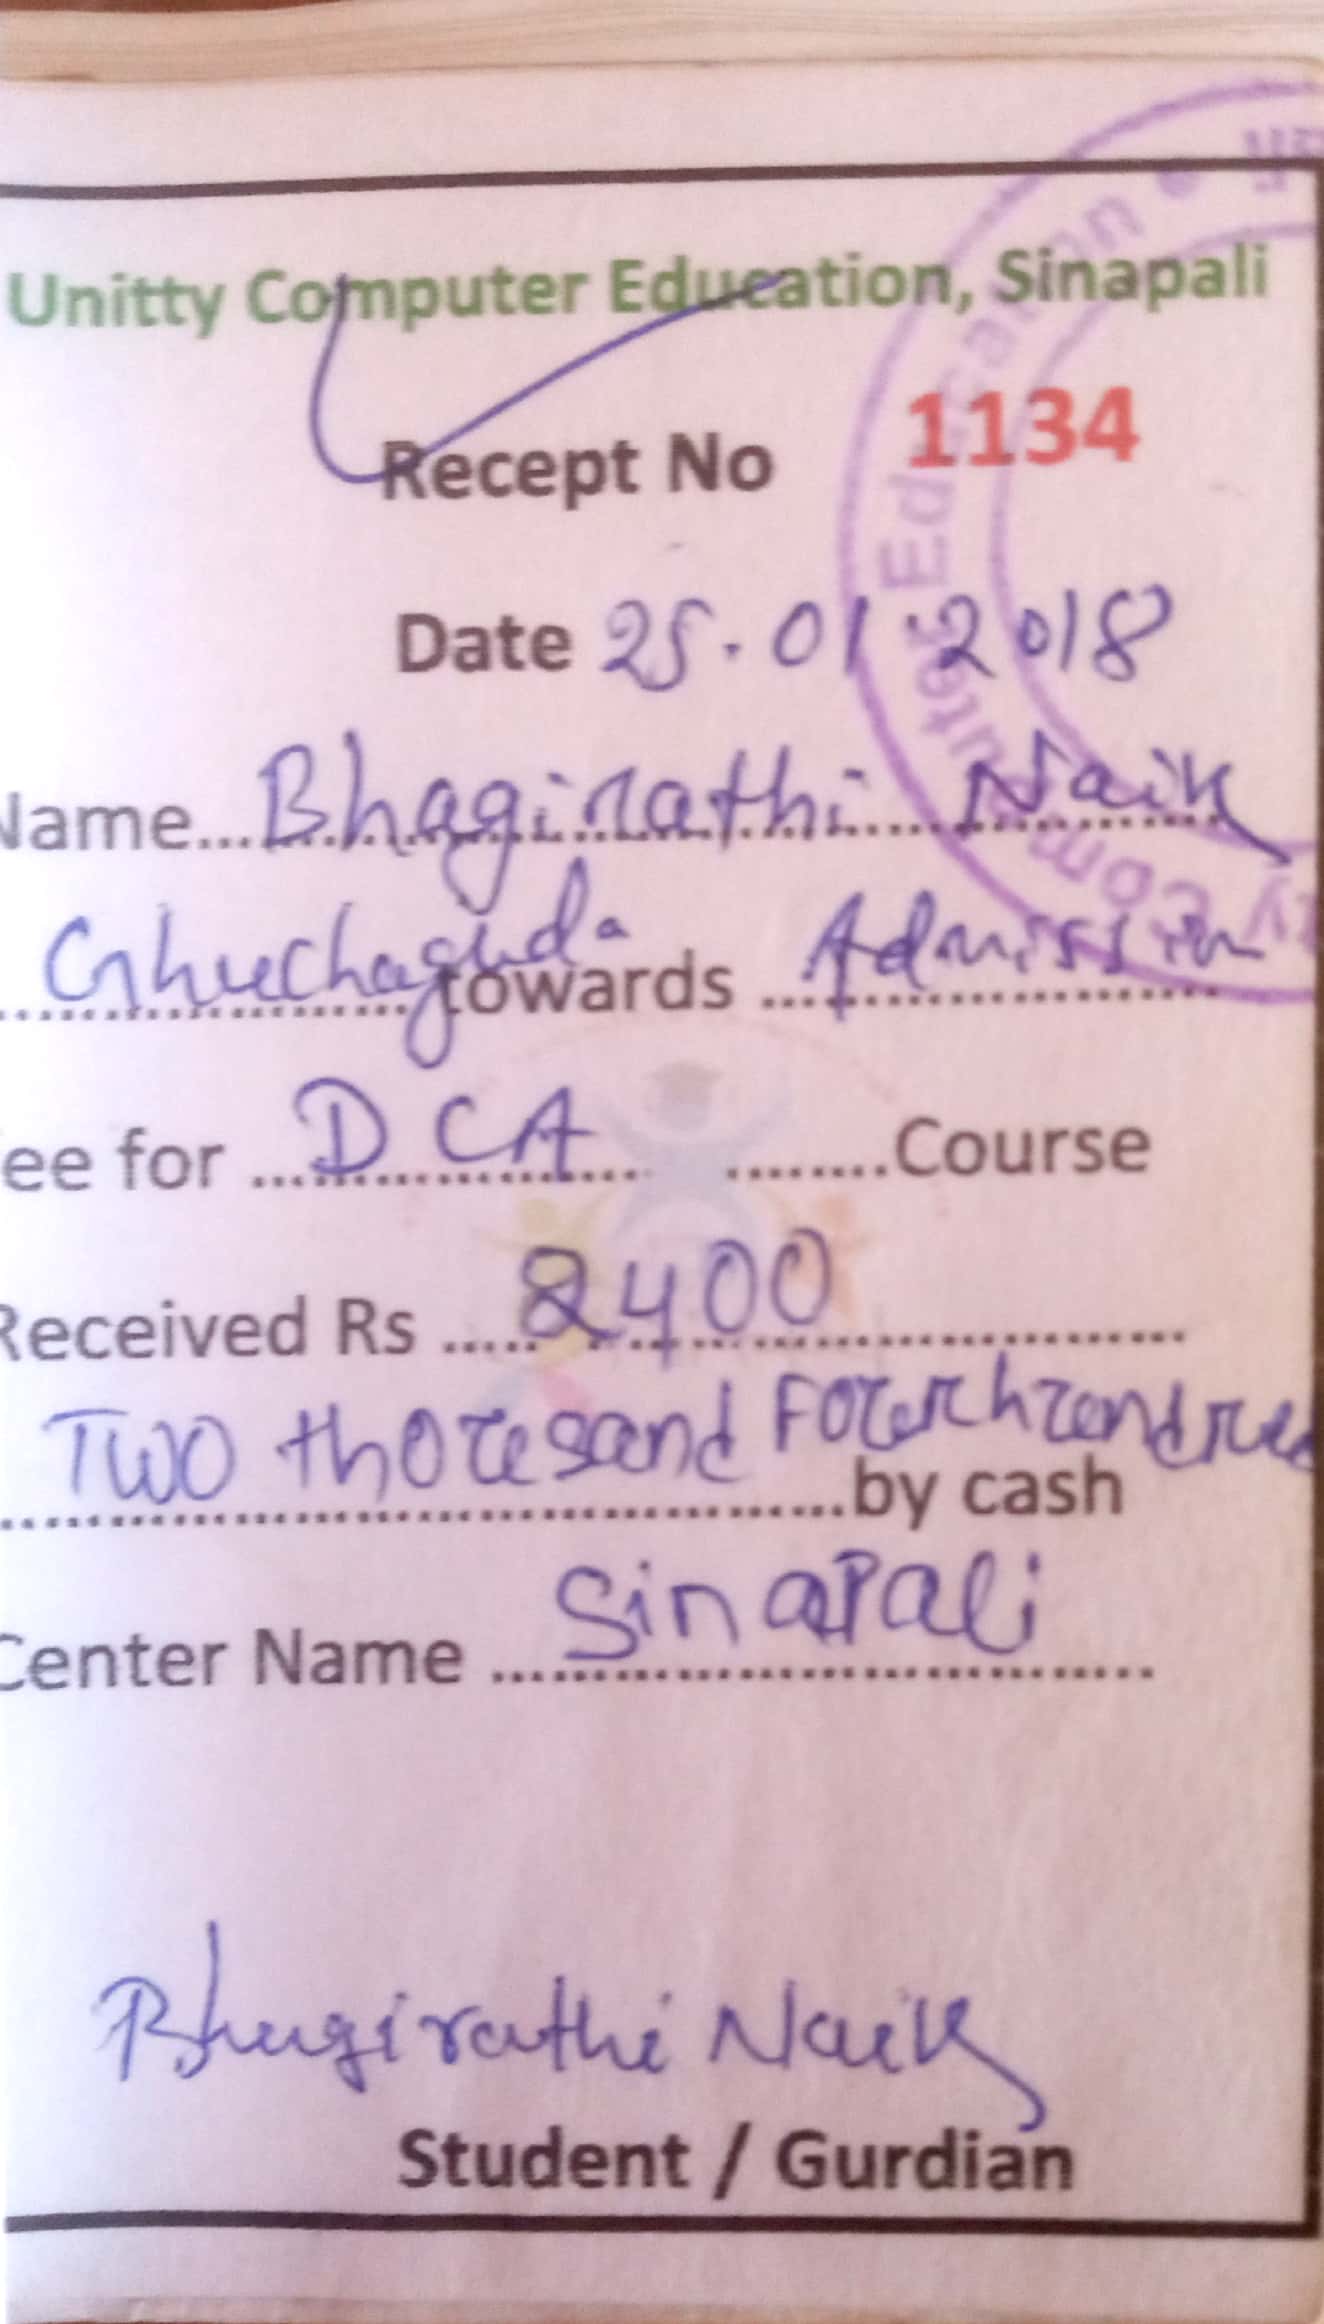 Unitty Computer Education, Sinapali
Recept No 1134
Date 25.01.2018
Name... Bhagirathi Naik
Ghuchaguda towards ... Admission
ee for ... DCA ........Course
Received Rs ..... 2400
Two thousand Four hundred
by cash
Center Name ... Sinapali
Bhagirathi Naik
Student / Gurdian